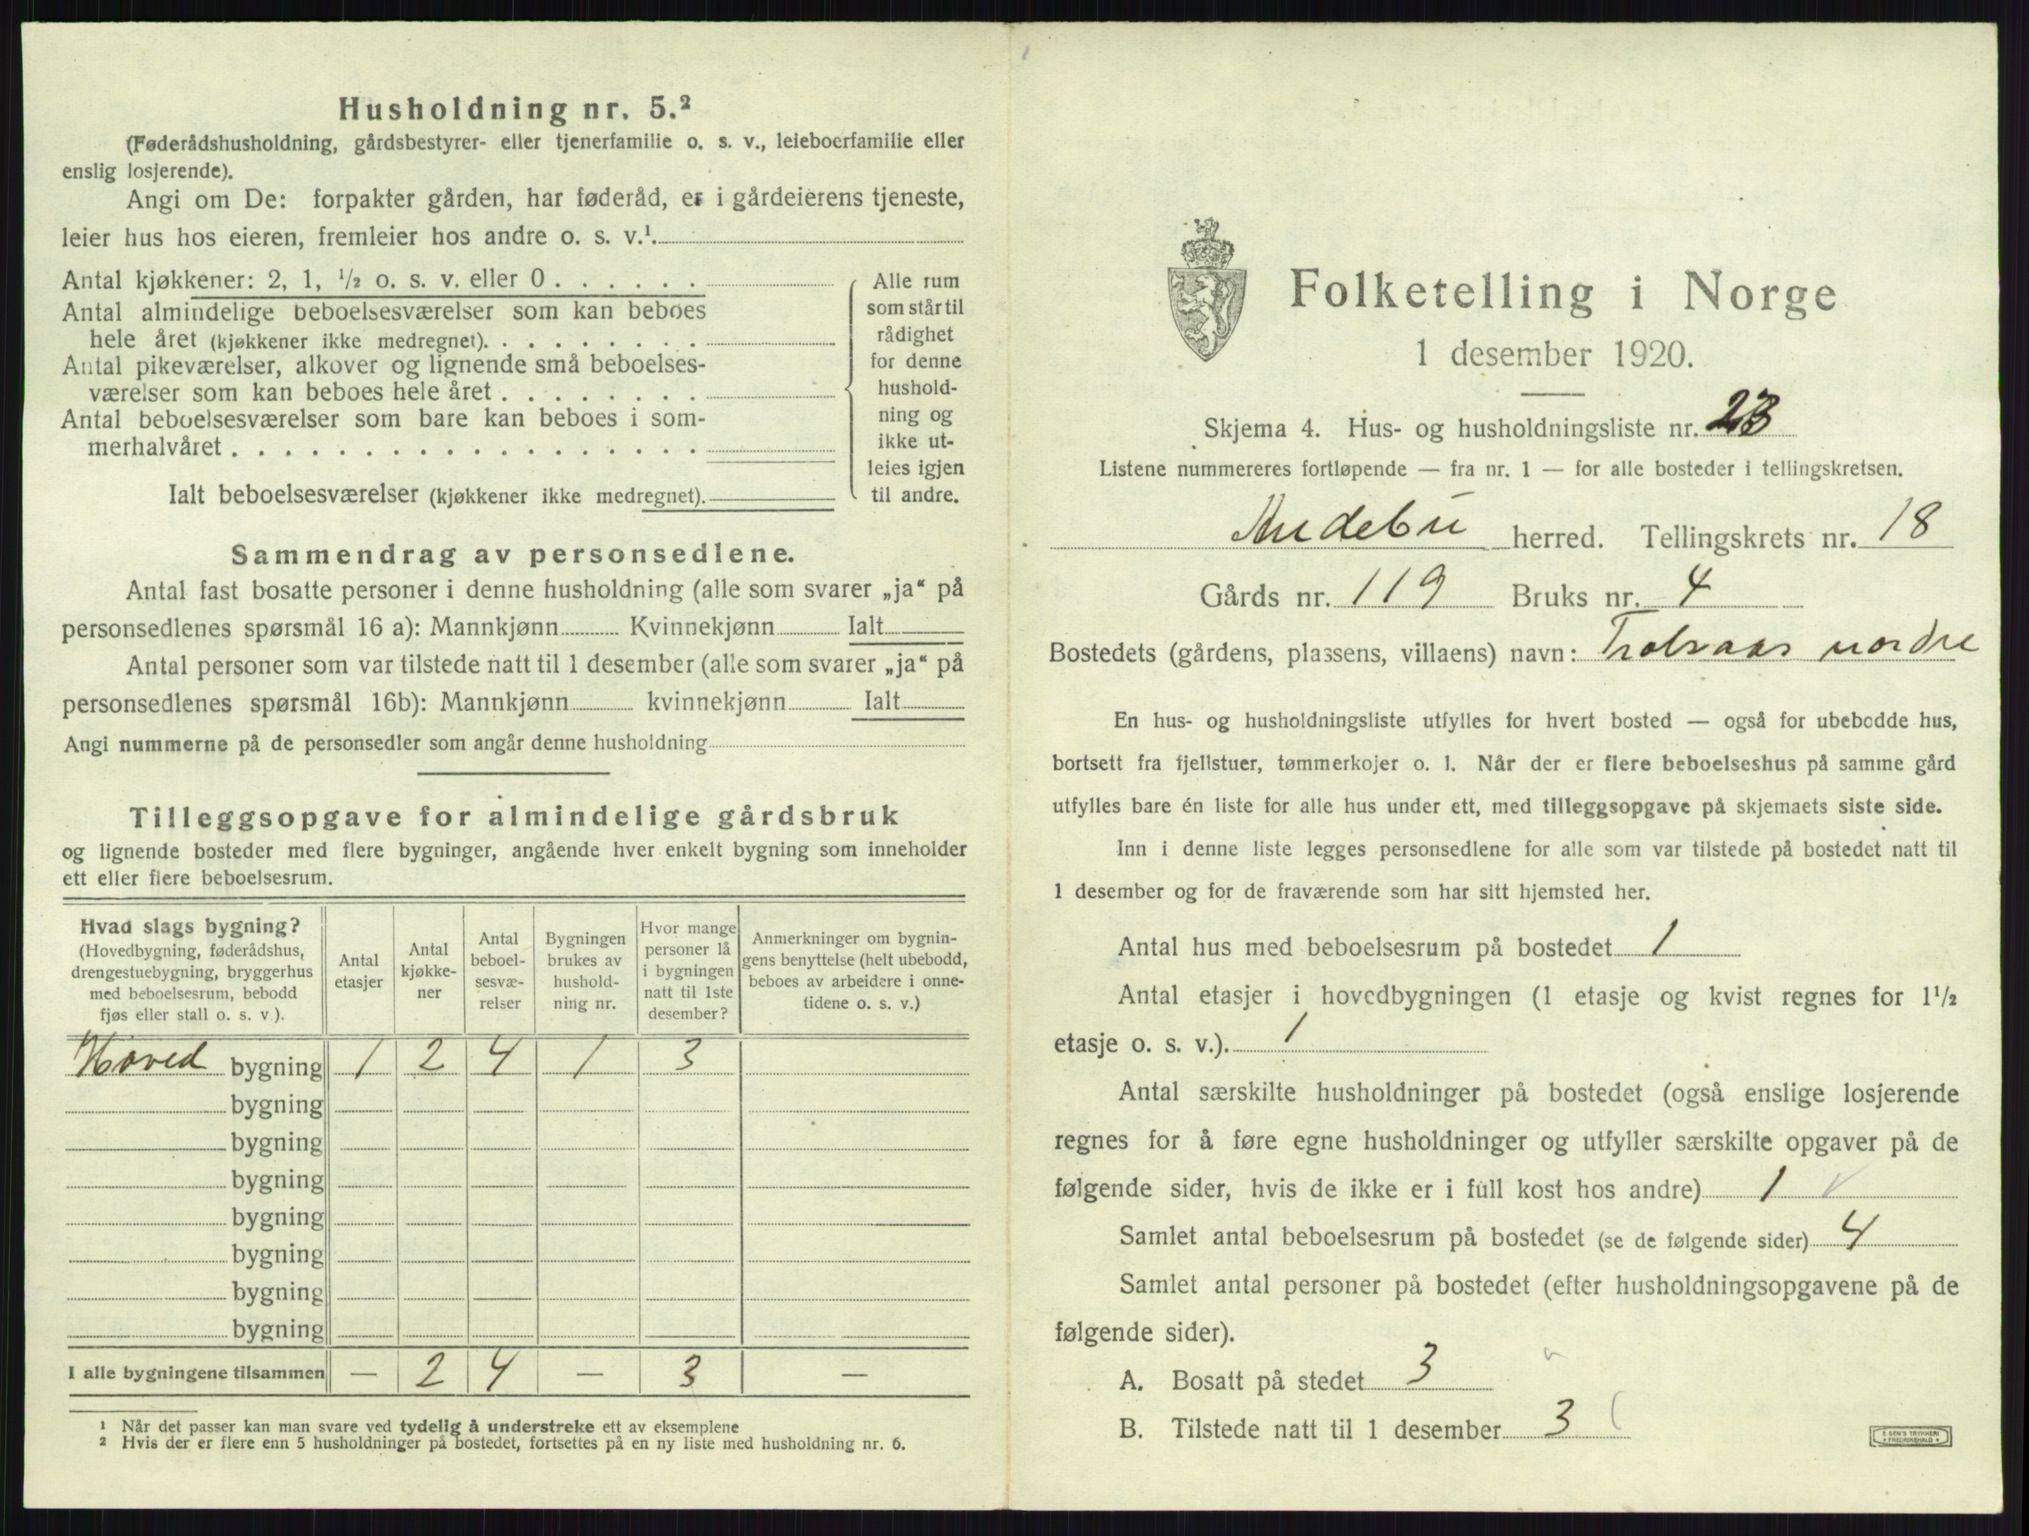 Husholdning nr. 5.²
(Føderådshusholdning, gårdsbestyrer- eller tjenerfamilie o. s. v., leieboerfamilie eller
enslig losjerende).
Angi om De: forpakter gården, har føderåd, er i gårdeierens tjeneste,
leier hus hos eieren, fremleier hos andre o. s. v.¹
Antal kjøkkener: 2, 1, ½ o. s. v. eller 0 . . . . . .
Antal almindelige beboelsesværelser som kan beboes
hele året (kjøkkener ikke medregnet). . . . . . . . .
Antal pikeværelser, alkover og lignende små beboelses-
værelser som kan beboes hele året . . . . . . . .
Antal beboelsesværelser som bare kan beboes i som-
merhalvåret . . . . . . . . . . . . . . . . . .
Ialt beboelsesværelser (kjøkkener ikke medregnet).
Alle rum
som står til
rådighet
for denne
hushold-
ning og
ikke ut-
leies igjen
til andre.
Sammendrag av personsedlene.
Antal fast bosatte personer i denne husholdning (alle som svarer „ja“ på
personsedlenes spørsmål 16 a): Mannkjønn Kvinnekjønn Ialt
Antal personer som var tilstede natt til 1 desember (alle som svarer „ja“ på
personsedlenes spørsmål 16b): Mannkjønn kvinnekjønn Ialt
Angi nummerne på de personsedler som angår denne husholdning
Tilleggsopgave for almindelige gårdsbruk
og lignende bosteder med flere bygninger, angående hver enkelt bygning som inneholder
ett eller flere beboelsesrum.
Hvad slags bygning?
(Hovedbygning, føderådshus,
drengestuebygning, bryggerhus
med beboelsesrum, bebodd
fjøs eller stall o. s. v ).
Antal
etasjer
Antal
kjøkke-
ner
Antal
beboel-
sesvæ-
relser
Bygningen
brukes av
hushold-
ning nr.
Hvor mange
personer lå
i bygningen
natt til 1ste
desember?
Anmerkninger om bygnin-
gens benyttelse (helt ubebodd,
beboes av arbeidere i onne-
tidene o. s. v.)
Hoved bygning 1 2 4 1 3
bygning
bygning
bygning
bygning
bygning
bygning
bygning
I alle bygningene tilsammen — 2 4 — 3 —
¹ Når det passer kan man svare ved tydelig å understreke ett av eksemplene
² Hvis der er flere enn 5 husholdninger på bostedet, fortsettes på en ny liste med husholdning nr. 6.
Folketelling i Norge
1 desember 1920.
Skjema 4. Hus- og husholdningsliste nr. 23
Listene nummereres fortløpende — fra nr. 1 — for alle bosteder i tellingskretsen.
Andebu herred. Tellingskrets nr. 18
Gårds nr. 119 Bruks nr. 4
Bostedets (gårdens, plassens, villaens) navn: Trolsaas nordre
En hus- og husholdningsliste utfylles for hvert bosted — også for ubebodde hus,
bortsett fra fjellstuer, tømmerkojer o. l. Når der er flere beboelseshus på samme gård
utfylles bare én liste for alle hus under ett, med tilleggsopgave på skjemaets siste side.
Inn i denne liste legges personsedlene for alle som var tilstede på bostedet natt til
1 desember og for de fraværende som har sitt hjemsted her.
Antal hus med beboelsesrum på bostedet 1
Antal etasjer i hovedbygningen (1 etasje og kvist regnes for 1½
etasje o. s. v.). 1
Antal særskilte husholdninger på bostedet (også enslige losjerende
regnes for å føre egne husholdninger og utfyller særskilte opgaver på de
følgende sider, hvis de ikke er i full kost hos andre) 1
Samlet antal beboelsesrum på bostedet (se de følgende sider) 4
Samlet antal personer på bostedet (efter husholdningsopgavene på de
følgende sider).
A. Bosatt på stedet 3
B. Tilstede natt til 1 desember 3